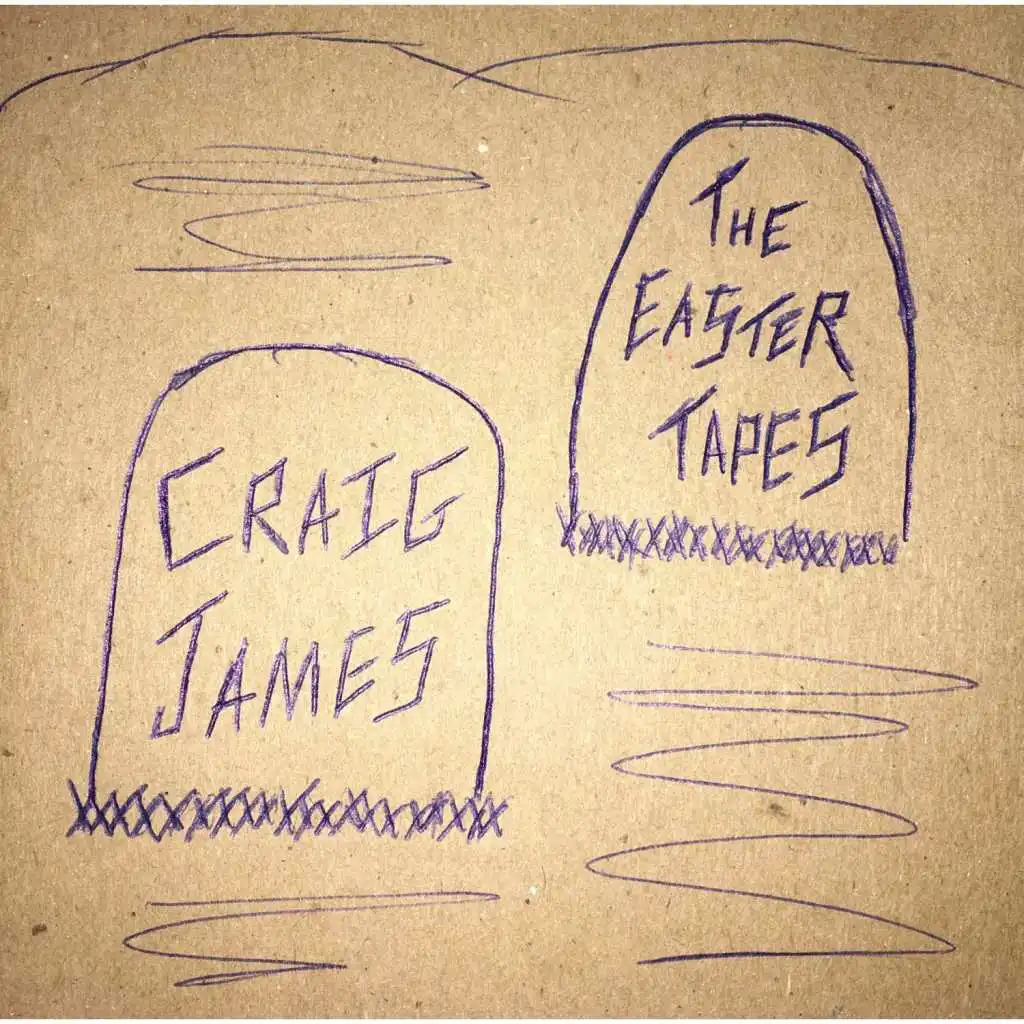 Craig
James
The
Easter
Tapes